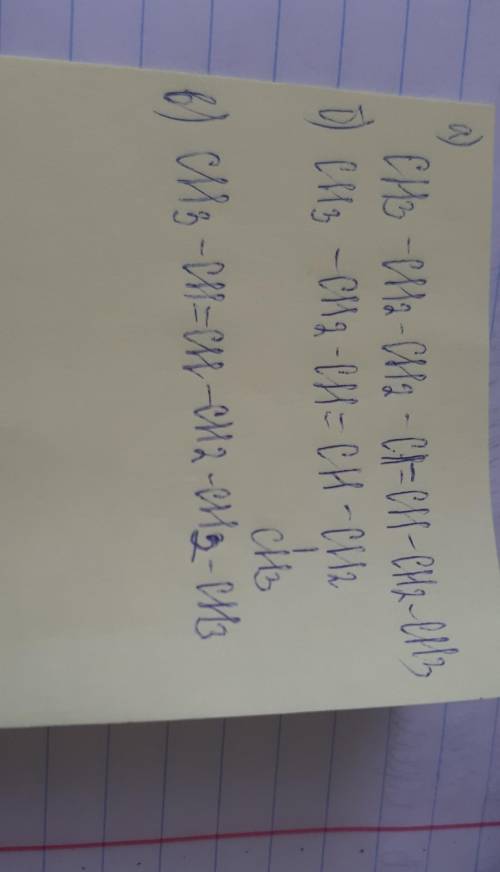 а) CH3 - CH2 - CH2 - CH = CH - CH2 - CH3
б) CH3 - CH2 - CH = CH - CH2
|
CH3
в) CH3 - CH = CH - CH2 - CH2 - CH3